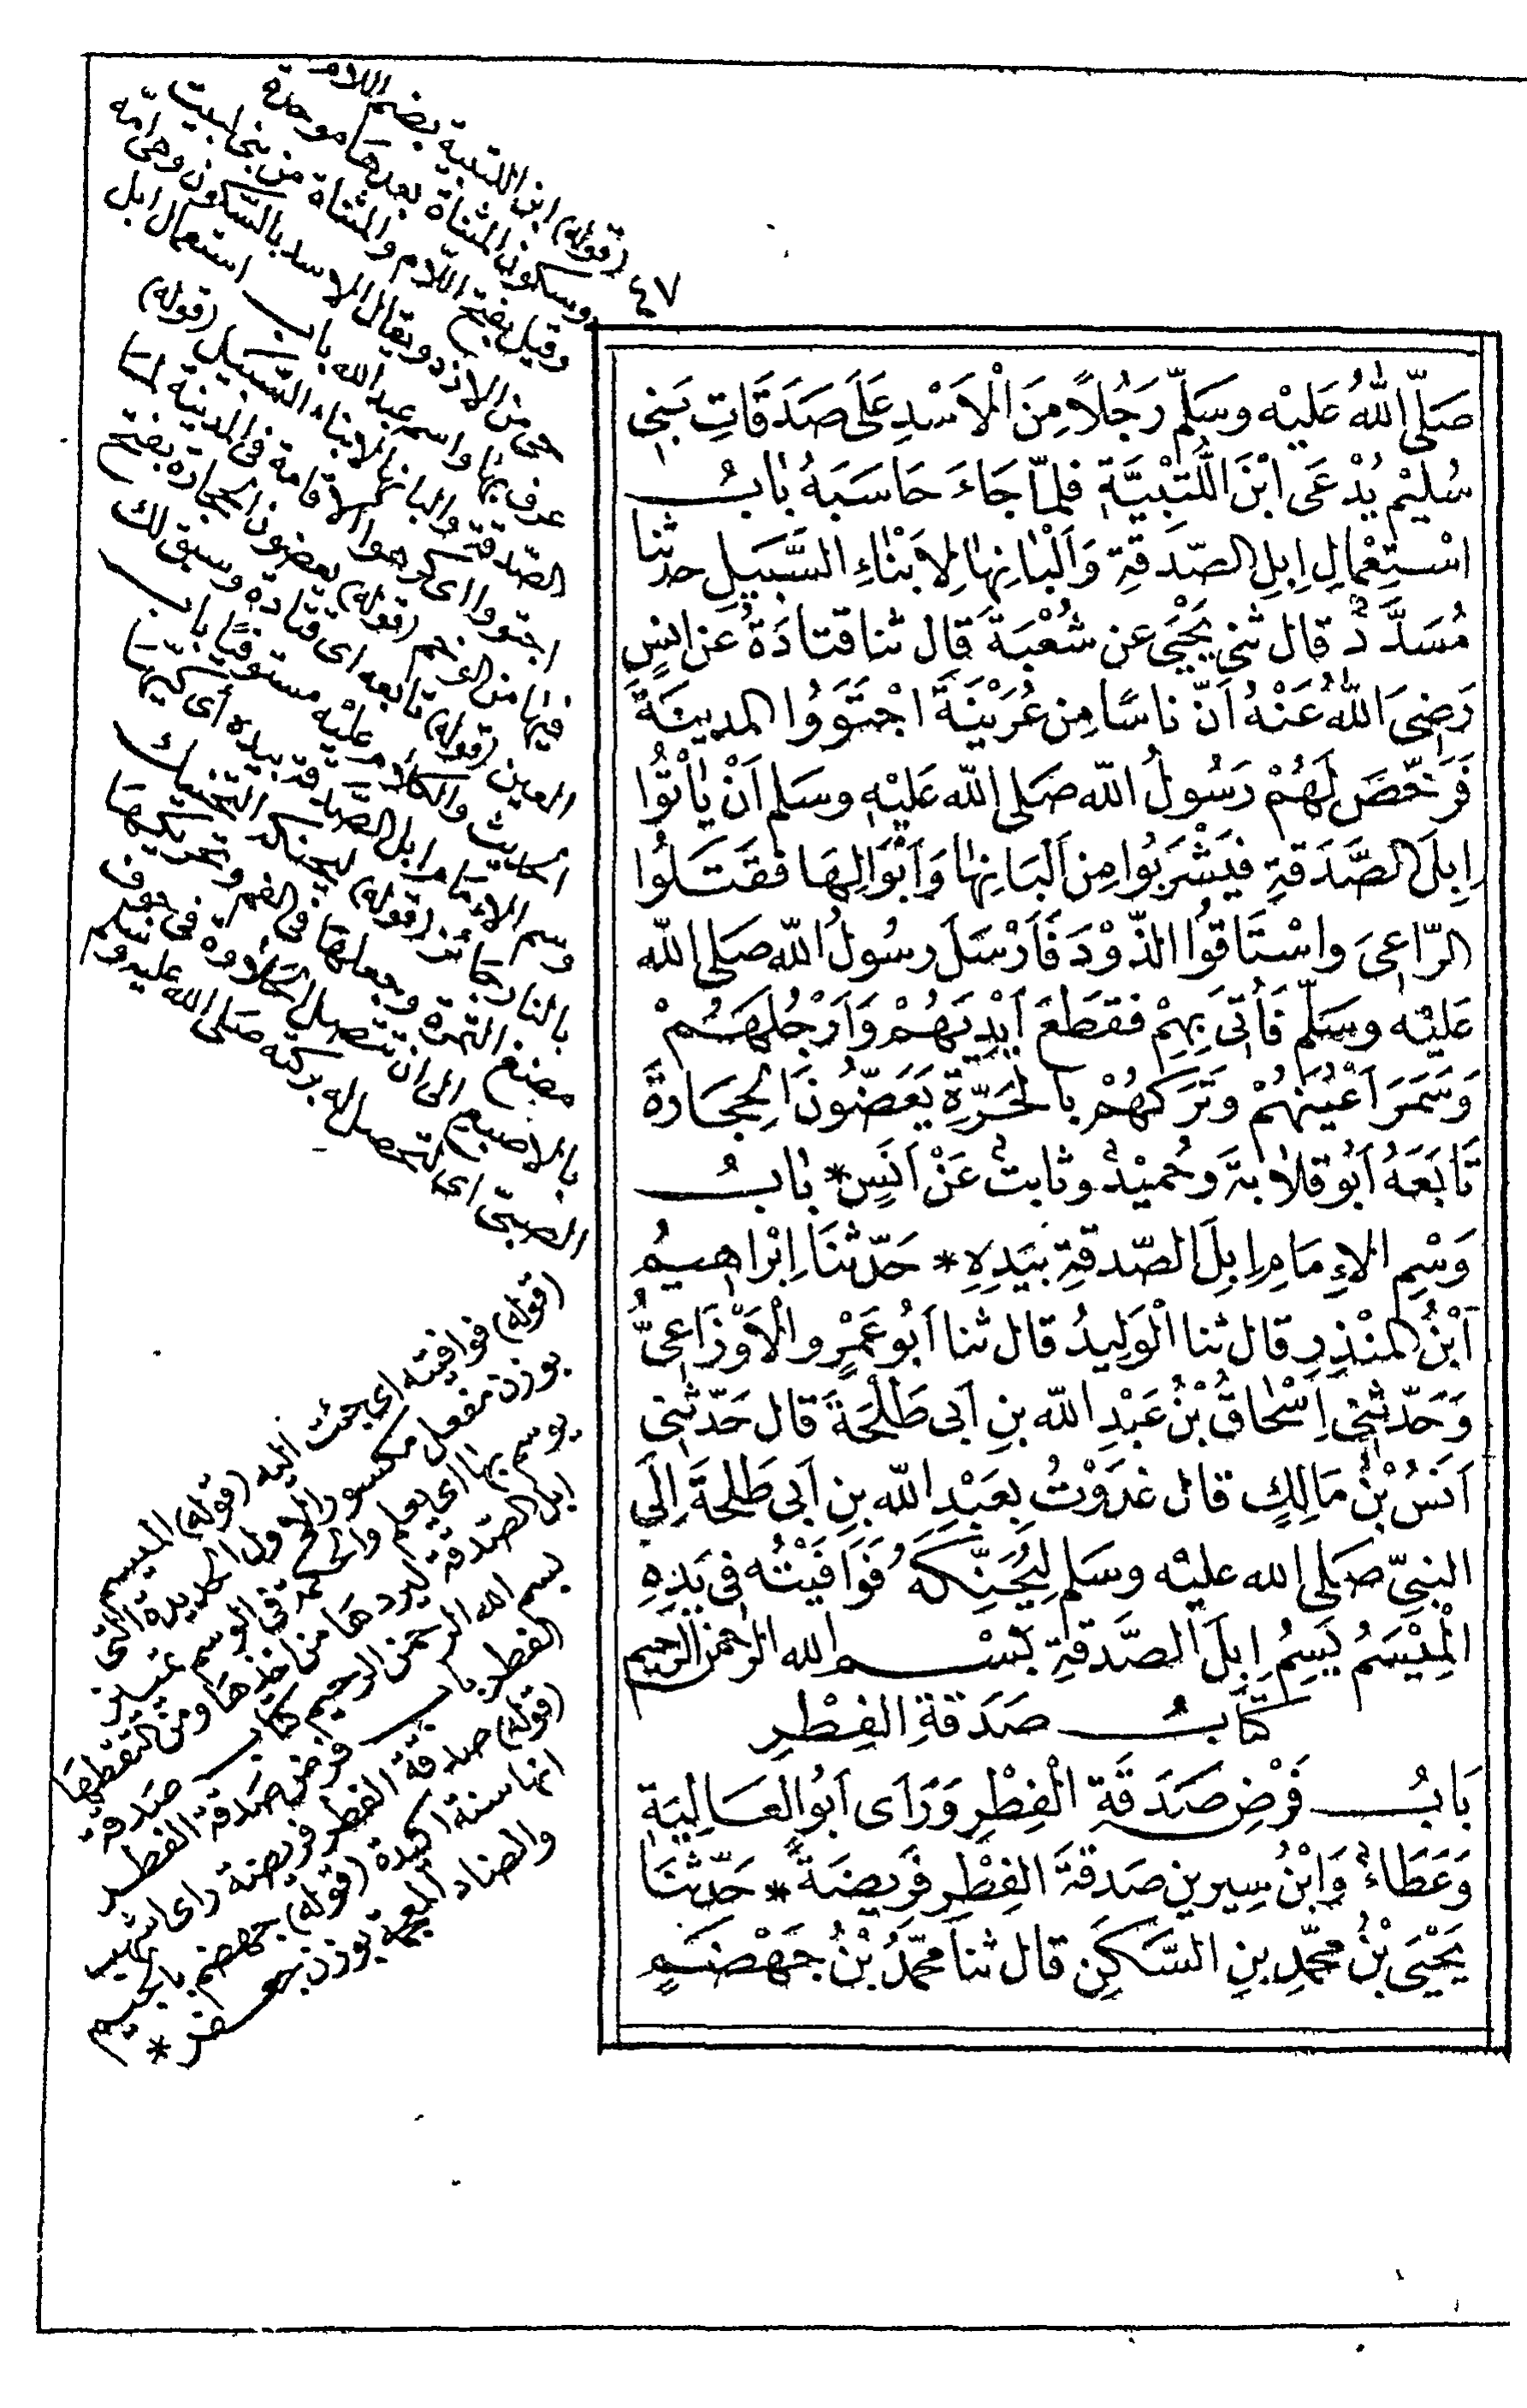 ٤٧
صَلَّى اللّٰهُ عَلَيْه وسَلَّمَ رَجُلًا مِنَ الْاَسْدِ عَلَى صَدَقَاتِ بَنِى
سُلَيْمٍ يُدْعَى ابْنَ اللُّتْبِيَّةِ فلمّا جَاءَ حَاسَبَهُ بَابُ
اسْتِعْمَالِ اِبِلِ الصّدقَةِ وَاَلْبَانِهَا لِاَبْنَاءِ السَّبِيلِ حدثنا
مُسَدَّدٌ قال ثنى يَحْيَى عن شُعْبَةَ قال ثنا قتادَةُ عَن انسٍ
رَضِىَ اللّٰهُ عَنْهُ اَنّ ناسًا مِن عُرَيْنَةَ اجْتَوَوُا المدِينَةَ
فَرَخَّصَ لَهُمْ رَسُولُ اللّه صَلى اللّه عَلَيْهِ وسَلم اَنْ يَاْتُوا
اِبِلَ الصَّدَقةِ فيَشْرَبُوا مِن اَلْبَانِهَا وَاَبْوَالِهَا فقَتَلُوا
الرّاعِىَ واسْتَاقُوا الذّوْدَ فَاَرْسَلَ رسُولُ اللّه صَلى اللّه
عَليْه وسَلّم فَاُتِىَ بِهِمْ فقَطَعَ اَيْدِيَهُمْ وَاَرْجُلَهُمْ
وَسَمَرَ اَعْيُنَهُمْ وَتَرَكهُمْ بالْحَرّةِ يَعَضّونَ الحِجَارةَ
تَابَعَهُ اَبُو قلابَةَ وحُميْدٌ وثابتٌ عَنْ اَنَسٍ * بَابُ
وَسْمِ الاِمَامِ اِبِلَ الصّدقةِ بيَدِهِ * حَدّثنَا اِبْراهيمُ
اَبْنُ المنْذِرِ قال ثنا الْوَلِيدُ قال ثنا اَبُو عَمْرٍو الْاَوْزَاعِىُّ
وَحَدّثنِى اِسْحَاقُ بْنُ عَبْدِ اللّه بنِ اَبى طَلْحَةَ قال حَدّثنِى
اَنَسُ بْنُ مَالِكٍ قال غدَوْتُ بِعَبْدِ اللّه بنِ اَبى طَلحَةَ اِلَى
النبىّ صَلى الله عليْه وسَلم لِيُحَنِّكَهُ فوَافَيْتُه فى يَدِهِ
الْمِيْسَمُ يَسِمُ اِبِلَ الصَّدقةِ بسْم الله الرحمن الرحيم
كتَابُ صَدَقةِ الفِطْرِ
بَابُ فَرْضِ صَدَقَةِ الْفِطْرِ وَرَاَى اَبُو العَالِيَةِ
وَعَطَاءٌ وَابْنُ سِيرين صَدقةَ الفِطْرِ فَرِيضَةً * حَدّثنَا
يَحْيَى بْنُ محمّدِ بنِ السَّكَنِ قال ثنا محمَّدُ بْنُ جَهْضَمٍ
(قوله) ابن اللتبية بضم اللام
وسكون المثناة بعدها موحدة
وقيل بفتح اللام والمثناة من بنى لتب
حى من الازد ويقال الاسد بالسّكون وهى امّه
عرف بها واسمه عبد الله باب استعمال ابل
الصّدقة والبانها لابناء السّبيل (قوله)
اجتووا اى كرهوا الاقامة فى المدينة لما
فيها من الوخم (قوله) يعضون الحجارة بفتح
العين (قوله) تابعه اى قتادة وسبق لك
الحديث والكلام عليه مستوفيًا باب
وسم الامام ابل الصّدقة بيده اى كيّها
بالنار (قوله) ليحنكه التحنيك
مضغ التمرة وجعلها فى الفم وتحريكها
بالاصبع الى ان تتصل الحلاوة فى جوف
الصبىّ اى لتحصل له بركته صلى الله عليه وسلم
(قوله) فوافيته اى جئت اليه (قوله) الميسم
بوزن مفعل مكسور الاول الحديدة التى
يوسم بها اى يعلم والحكمة فى الوسم تمييز
ابل الصّدقة ليردها من اخذها ومن التقطها
بسم الله الرحمن الرحيم كتاب صدقة
الفطر باب فرض صدقة الفطر
(قوله) صدقة الفطر فريضة راى اشهب
انها سنة اكيدة (قوله) جهضم بالجيم
والضاد المعجمة بوزن جعفر *